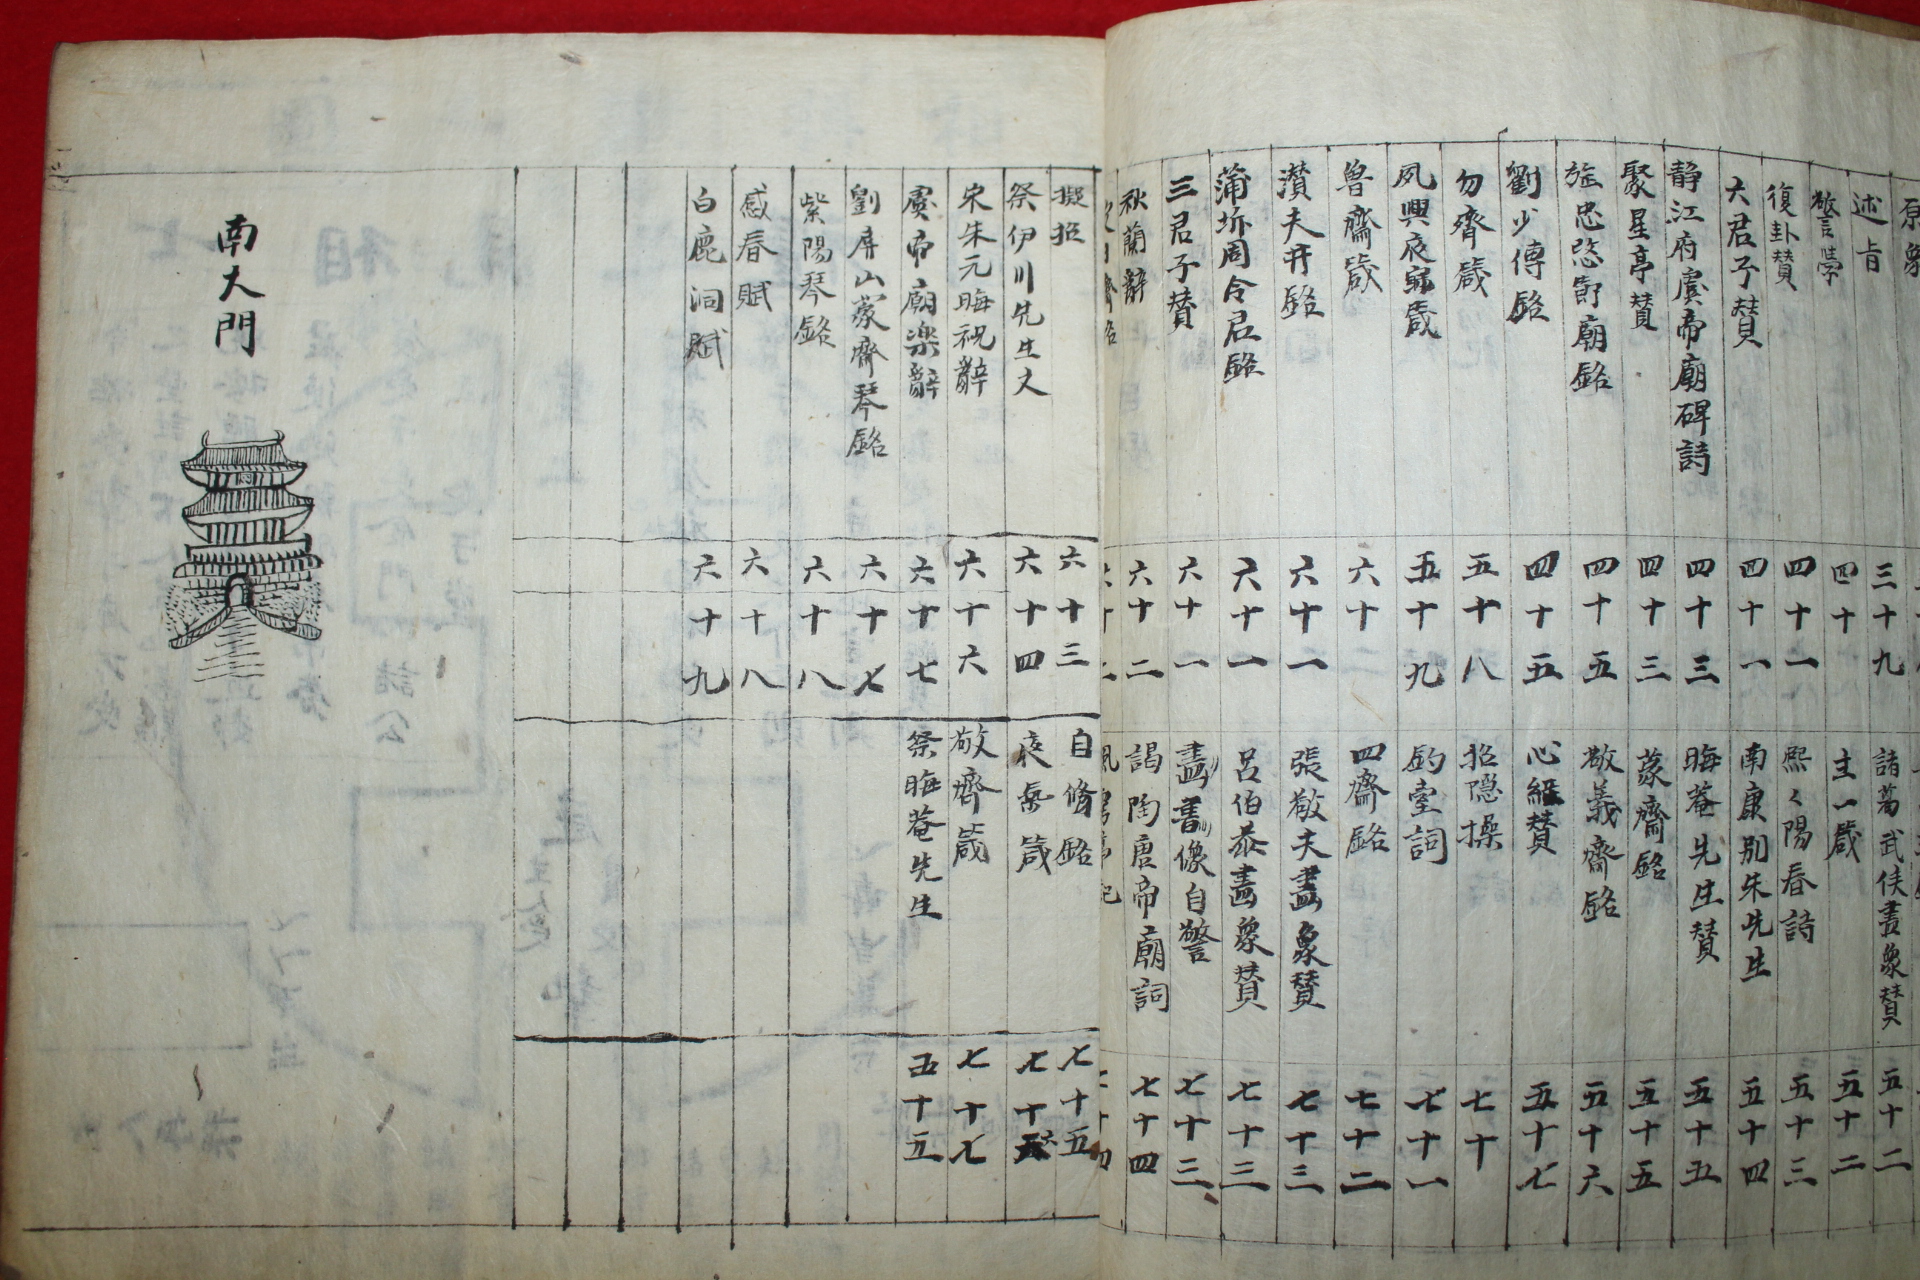 述旨 三十九 諸葛武侯畫象賛 五十二
警學 四十 主一箴 五十二
復卦賛 四十一 熙々陽春詩 五十三
六君子賛 四十一 南康別朱先生 五十四
静江府虞帝廟碑詩 四十三 晦菴先生賛 五十五
聚星亭賛 四十三 蒙齋銘 五十五
旌忠愍節廟銘 四十五 敬義齋銘 五十六
劉少傅銘 四十五 心經賛 五十七
勿齊箴 五十八 招隠操 七十
夙興夜寐箴 五十九 釣臺詞 七十一
魯齋箴 六十 四齋銘 七十二
濳夫井銘 六十一 張敬夫畫象賛 七十三
蒲圻周令君銘 六十一 呂伯恭畫象賛 七十三
三君子賛 六十一 畵書像自警 七十三
秋蘭辭 六十二 謁陶唐帝廟詞 七十四
擬招 六十三 自脩銘 七十五
祭伊川先生文 六十四 夜氣箴 七十
宋朱元晦祝辭 六十六 敬齊箴 七十七
虞帝廟楽辭 六十七 祭晦菴先生 五十五
劉屏山蒙齊琴銘 六十七
紫陽琴銘 六十八
感春賦 六十八
白鹿洞賦 六十九
南大門